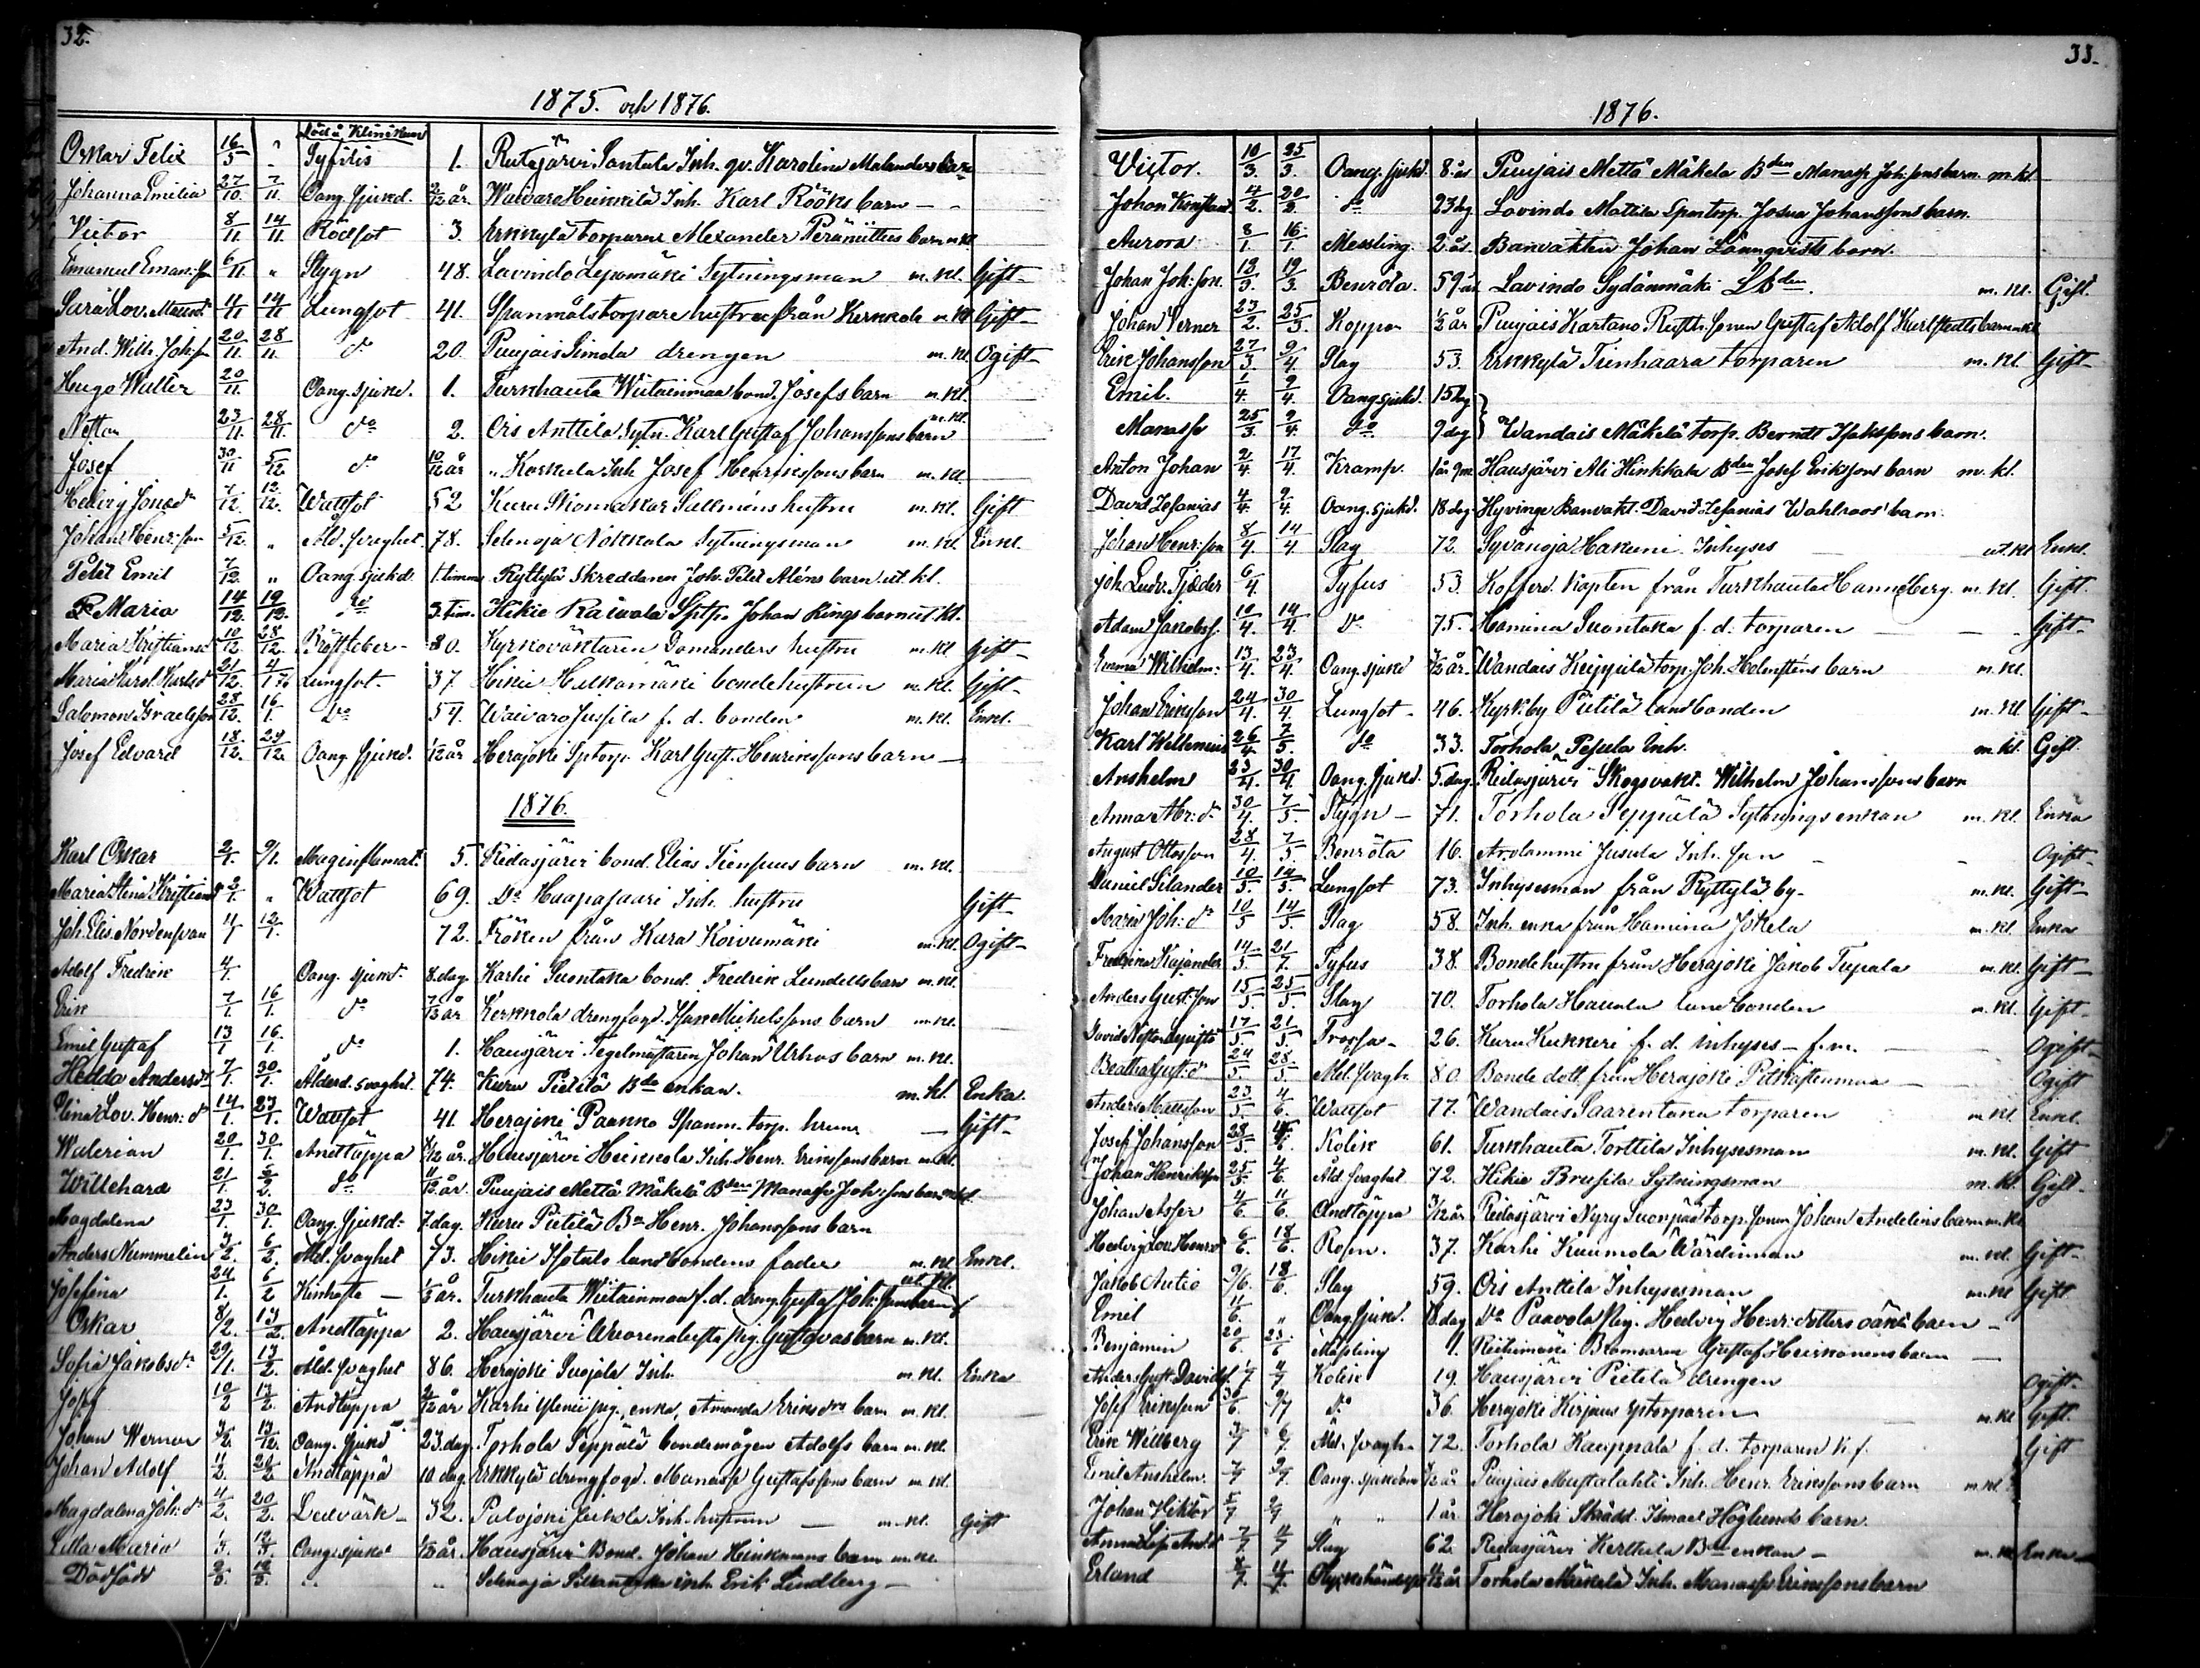 32.
1875. och 1876.
död å Kliniken
Oskar Felix 16/5 " Syfilis 1. Ridasjärvi Santala Inh. qv. Karolina Malanders barn
Johanna Emilia 27/10. 7/11. Oang. sjukd. 2/12 år. Waivaro Heinkilä Inh. Karl Rööks barn
Victor 8/11. 14/11. Rödsot 3. Erkkylä torparne Alexander Peräniittus barn m kl
Emanuel Eman:son 6/11 " Stygn 48. Lavindo Lepomäki Sytningsman m. kl. Gift
Sara Lov. Maurd:r 4/11 14/11 Lungsot 41. Spanmålstorpare hustru från Kerkkola m kl Gift
And. Wilh. Joh:s 20/11. 28/11. d:o 20. Puujais Simola drengen m. kl. Ogift
Hugo Walter 20/11. Oang. sjukd. 1. Turkhauta Wiitainmaa bond. Josefs barn m. kl.
Nestor 23/11. 28/11. d:o 2. Ois Anttila Sytn. Karl Gustaf Johanssons barn m. kl.
Josef 30/11 5/12 d:o 10/12 år " Korkula Inh. Josef Henrikssons barn m. kl.
Hedvig Jonasd:r 7/12. 12/12. Wattsot 52 Kuru Skomakar Sallméns hustru m. kl. Gift
Johan Henr:son 5/12. " Åld. svaghet 78. Selenoja Nökkola Sytningsman m. kl Enkl.
Petèr Emil 7/12. " Oang. sjukd. 1. timme Ryttylä Skreddaren Joh. Petèr Aléns barn ut. kl.
Maria 14/12. 19/12. d:o 3. tim. Hikiä Raivala Sptp. Johan Rings barn ut kl.
Maria Kristiansd:r 10/12. 28/12. Bröstfeber 80. Kyrkovaktaren Domanders hustru m. kl Gift
Maria Karol. Karlsd:r 21/12. 4/1 76 Lungsot 37. Hikiä Hulkomäki bondehustrun m. kl. Gift
Salomon Israelsson 28/12. 16/1. D:o 54. Waivaro Jussila f. d. bonden m. kl. Enkl.
Josef Edvard 18/12. 29/12. Oang. sjukd. 1/12 år Herajoki Sptorp. Karl Gust. Henrikssons barn
1876.
Karl Oskar 2/1. 9/1. Maginflemat. 5. Ridasjärvi bond. Elias Tiensuus barn m. kl.
Maria Stina Kristiansd:r 3/1. " Wattsot 69. D:o Haapasaari Inh. hustru Gift
Joh. Elis. Nordensvan 4/1 12/1. 72. Fröken från Kara Koivumäki m. kl. Ogift
Adolf Fredrik 4/1. Oang. sjukd. 8. dag. Karhi Suontaka bond. Fredrik Lundells barn m. kl.
Erik 7/1. 16/1. d:o 7/12 år Kerkkola drengfogd. Isak Michelssons barn m. kl.
Emil Gustaf 13/1 16/1. d:o 1. Hausjärvi Tegelmästaren Johan Urhos barn m. kl.
Hedda Andersd:r 7/1. 30/1. Ålderd. svaghet 74. Kuru Pietilä B:de enkan. m. kl. Enka
Stina Lov. Henr:d:r 14/1. 23/1. Wattsot 41. Herajoki Paanko Spanm. torp. hustru Gift
Walerian 20/1. 30/1. Andtäppa /12 år. Hausjärvi Heikkola Inh. Henr. Erikssons barn m. kl.
Willehard 21/1. 6/2. d:o 11/12 år. Puujais Mettä Mäkelä B:den Manasse Joh:sons barn m kl.
Magdalena 23/1. 30/1. Oang. sjukd. 7 dag. Kuru Pietilä B:n Henr. Johanssons barn
Anders Nummelin 3/2. 6/2. Åld. svaghet 73. Hikiä Isotalo landbondens fader m. kl Enkl.
Josefina 24/1. 6/2 Kinkosta /12 år. Turkhauta Wiitainmaa f. d. dreng. Gustaf Joh:sons barn ut. kl.
Oskar 8/2. 13/2. Andtäppa 2. Hausjärvi Wuorenalusta pig. Gustavas barn m. kl.
Sofia Jakobsd:r 29/1. 13/2. Åld. svaghet 86. Herajoki Suojala Inh. m. kl. Enka
Josef 10/2 13/2. Andtäppa /12 år Karhi Ylenii pig. enka, Amanda Eriksd:rs barn m. kl.
Johan Werner 3/2. 13/2. Oang. sjukd 23. dag. Torhola Seppälä bondemågen Adolfs barn m. kl.
Johan Adolf 11/2. 20/2 Andtäppa 10 dag Erkkylä drengfogd. Manasse Gustafssons barn m kl.
Magdalena Joh:d:r 4/2. 20/2. Ledvärk 32. Palojoki Jukola Inh. hustrun m. kl. Gift
Lilla Maria 1/3. 12/3. Oang. sjukd /12 år. Hausjärvi Bond. Johan Heikmans barn m. kl.
Dödfödd 3/3. 12/3. " " Selenoja inh. Erik Lindberg
33.
1876.
Victor. 10/3. 25/3. Oang. sjukd. 8 år Puujais Mettä Mäkelä B:den Manasse Joh:sons barn m. kl.
Johan Konstant. 4/2. 20/2. d:o 23 dg Lavindo Mattila Spm torp. Josua Johanssons barn.
Aurora 8/1. 16/1. Messling. 2 år. Banvakten Johan Lönnqvists barn.
Johan Joh:son. 13/3. 19/3. Benröta. 59 år Lavindo Sydänmäki LB:den. m. kl. Gift.
Johan Verner 23/2. 25/3. Koppor ½ år Puujais Kartano Rusth. sonen Gustaf Adolf Karlstedts barn m kl
Erik Johansson 27/3. 9/4. Slag 53. Erkkylä Tienhaara torparen m. kl. Gift
Emil. 1/4. 9/4. Oang sjukd. 15 dg
Manasse 25/3. 9/4. d:o 9 dag Wandais Mäkelä torp. Berndt Isakssons barn.
Anton Johan 2/4. 17/4. Kramp. 1 år 9 m. Hausjärvi Ali Hinkkala B:den Josef Erikssons barn m. kl.
David Zefanias 4/4. 9/4. Oang. sjukd. 18 dag Hyvinge Banvakt. David Zefanias Wahlroos' barn.
Johan Henr:son 8/4. 14/4 Slag 72. Syvänoja Hakuni Inhyses ut. kl Enkl.
Joh. Ludv. Tjäder 6/4. Tyfus 53. Kofferd. Kapten från Turkhauta Hanneberg m. kl. Gift.
Adam Jakobss. 10/4. 14/4. D:o 75. Hamina Suontaka f. d. torparen Gift
Emma Wilhelm: 13/4. 23/4. Oang. sjukd /12 år. Wandais Keippilä torp. Joh. Helmsténs barn m. kl.
Johan Eriksson 24/4. 30/4. Lungsot 46. Kyrkby Pietilä landbonden m. kl Gift
Karl Wellenius 26/4. 7/5. d:o 33. Torhola Pesula Inh. m. kl. Gift.
Anshelm 23/4. 30/4. Oang. sjukd. 5. dag. Ridasjärvi Skogsvakt. Wilhelm Johanssons barn
Anna Mr:d:r 30/4. 7/5. Stygn 71. Torhola Seppälä Sytningsenkan m. kl. Enka
August Ottosson 28/4. 7/5. Benröta 16. Arolammi Jusula Inh. son Ogift
Daniel Silander 10/5. 14/5. Lungsot 73. Inhysesman från Ryttylä by m. kl. Gift
Maria Joh:d:r 10/5 14/5. Slag 58. Inh. enka från Hamina Jokela m. kl Enka
Fredrika Kajander 14/5. 21/5. Tyfus 38. Bondehustru från Herajoki Jakob Tupala m. kl Gift
Anders Gust:son 15/5. 25/5. Slag 70. Torhola Haunla landbonden m. kl Gift
David Nestor 17/5. 21/5. Trossa 26. Kuru Kukkeri f. d. inhyses f. m. Ogift
Beatha Gust:d:r 24/5. 28/5. Åld. svagh. 80. Bonde dott. från Herajoki Pitkästenmaa Ogift
Anders Mattsson 23/5. 4/6. Wattsot 77. Wandais Saarentaka torparen m. kl Enkl.
Josef Johansson 28/5. 4/6. Kolik 61. Turkhauta Torttila Inhysesman m. kl. Gift
Johan Henriksson 25/5 4/6. Åld. svaghet 72. Hikiä Brusila Sytningsman m. kl. Gift.
Johan Asser 4/6. 11/6. Andtäppa 3/12 år. Ridasjärvi Nyry Suonpää torp. sonen Johan Andelins barn m. kl
Hedvig Lov. Henrd:r 6/6. 18/6. Rosen. 37. Karhi Kuumola Wärdinnan m. kl. Gift
Jakob Autio 9/6. 18/6. Slag 59. Ois Anttila Inhysesman m. kl Gift
Emil 11/6. " Oang. sjukd. 8 dag D:o Paavola Pig. Hedvig Henr:dotters oäkta barn
Benjamin 20/6. 25/6 Mässling 1. Riihimäki Bromsaren Gustaf Heiskanens barn
Anders Gust. Davids. 1/7 4/7 Kolik 19. Hausjärvi Pietilä drengen Ogift
Josef Eriksson 30/6. 9/7 d:o 36. Herajoki Kirjaus sptorparen m. kl Gift.
Erik Willberg 3/7 6/7. Åld. svagh. 72. Torhola Kauppala f. d. torparen k. f. Gift
Emil Anshelm. 7/7 9/7. Oang. sjukdom /12 år Puujais Mustalahti Inh. Henr. Erikssons barn m. kl.
Johan Viktor 5/7 9/7 " " 1 år Herajoki Skrädd. Ismael Höglunds barn.
Anna Lis. And:d 7/7 /7 Slag 62. Ridasjärvi Kerkkola B:de enkan m. kl Enka
Erland 8/7. /7. Olyckshändelse /12 år Torhola Mäkelä Inh. Manasse Erikssons barn